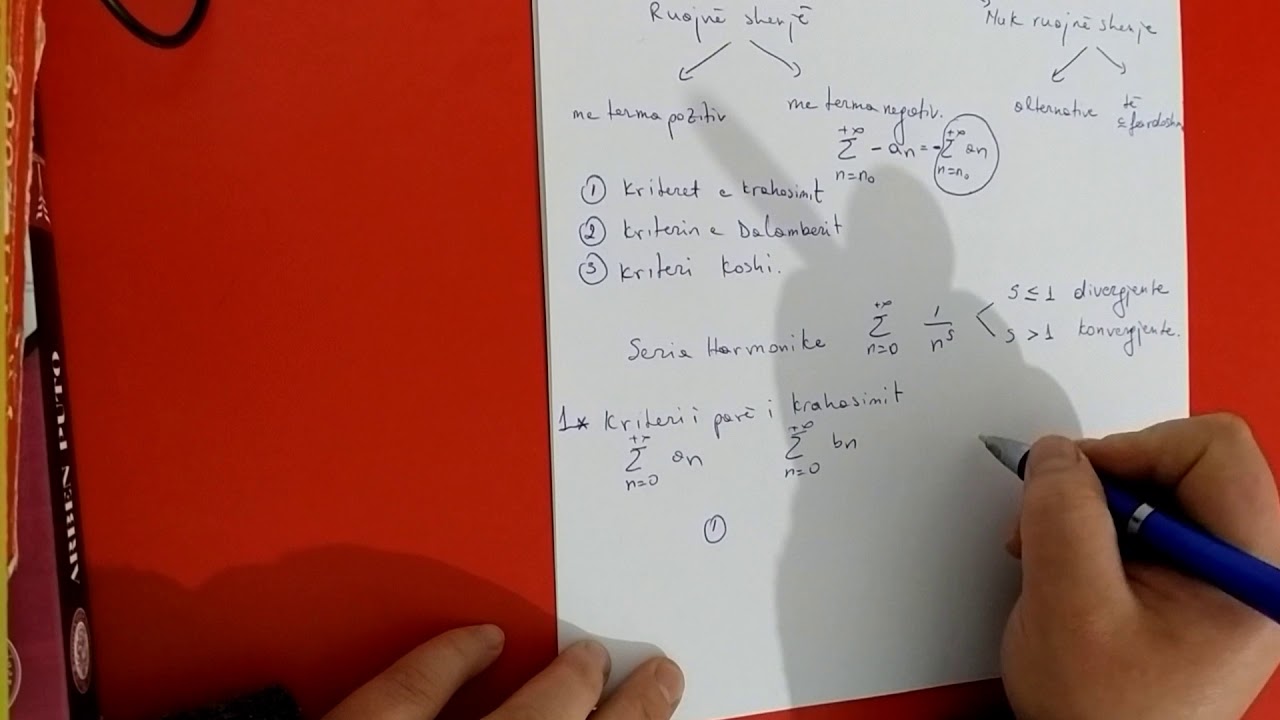 Ruajnë shenjë
Nuk ruajnë shenje
me terma pozitiv
me terma negativ.
alternative
të
çfardoshm
+∞ Σ n=n₀ - an = - +∞ Σ n=n₀ an
① Kriteret e krahasimit
② Kriterin e Dalamberit
③ Kriteri Koshi.
Seria Harmonike +∞ Σ n=0 1/n^s
s ≤ 1 divergjente
s > 1 konvergjente.
1* Kriteri i parë i krahasimit
+∞ Σ n=0 an +∞ Σ n=0 bn
①
ARBEN PLUTO